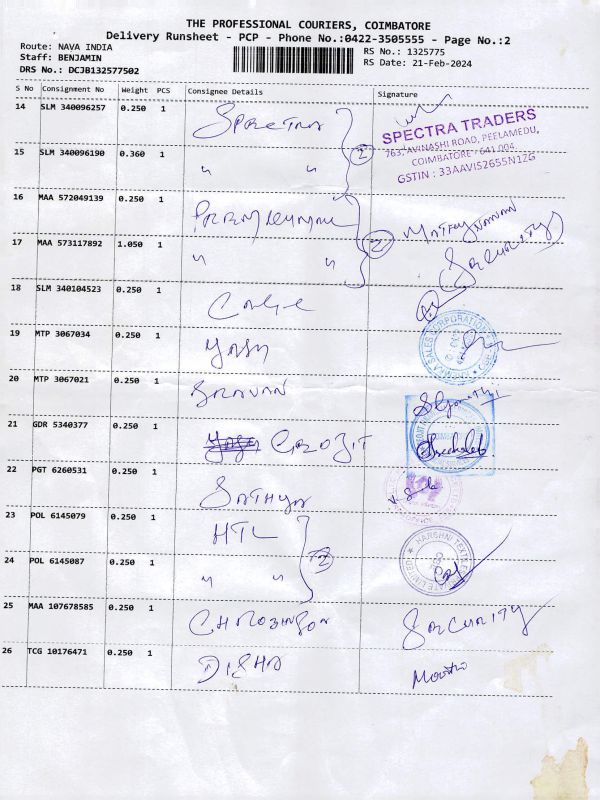 THE PROFESSIONAL COURIERS, COIMBATORE
Delivery Runsheet - PCP - Phone No.:0422-3505555 - Page No.:2
Route: NAVA INDIA
RS No.: 1325775
Staff: BENJAMIN
RS Date: 21-Feb-2024
DRS No.: DCJB132577502
S No Consignment No Weight PCS Consignee Details Signature
14 SLM 340096257 0.250 1 SPECTRA
SPECTRA TRADERS
763, AVINASHI ROAD, PEELAMEDU,
COIMBATORE - 641 004.
GSTIN : 33AAVIS2655N1ZG
15 SLM 340096190 0.360 1 " " 2
16 MAA 572049139 0.250 1
17 MAA 573117892 1.050 1 " " 2 SECURITY
18 SLM 340104523 0.250 1
19 MTP 3067034 0.250 1 YASH
SALES CORPORATION
20 MTP 3067021 0.250 1 SARAVAN
21 GDR 5340377 0.250 1 CROZIT
22 PGT 6260531 0.250 1 SATHYA
23 POL 6145079 0.250 1 HTL
HARSHNI TEXTILE
24 POL 6145087 0.250 1 " " 2
25 MAA 107678585 0.250 1 SECURITY
26 TCG 10176471 0.250 1 DISHA